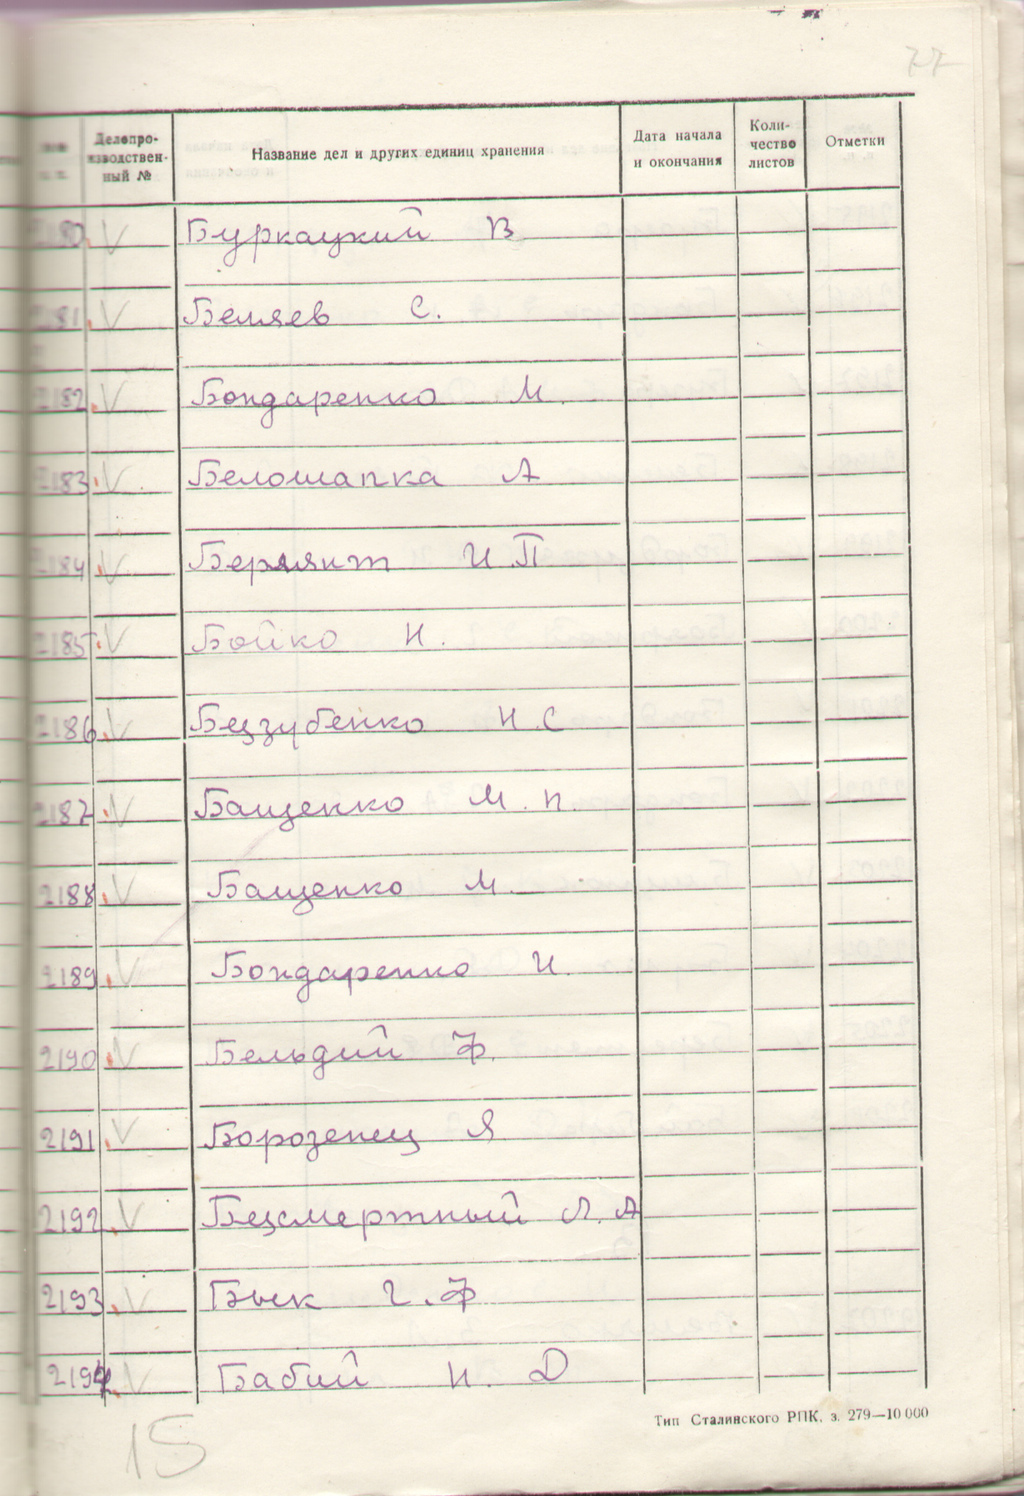 77
Делопро-
изводствен-
ный №
Название дел и других единиц хранения
Дата начала
и окончания
Коли-
чество
листов
Отметки
2180 V Буркацкий В
2181 V Беляев С.
2182 V Бондаренко М.
2183 V Белошапка А
2184 V Берлянт И.П
2185 V Бойко Н.
2186 V Беззубенко Н.С
2187 V Бащенко М.п.
2188 V Бащенко М.
2189 V Бондаренко И.
2190 V Бельдий Ф.
2191 V Борозенец Я
2192 V Безсмертный Л.А
2193 V Бык Г.Ф
2194 V Бабий Н. Д
Тип Сталинского РПК, з. 279—10 000
15